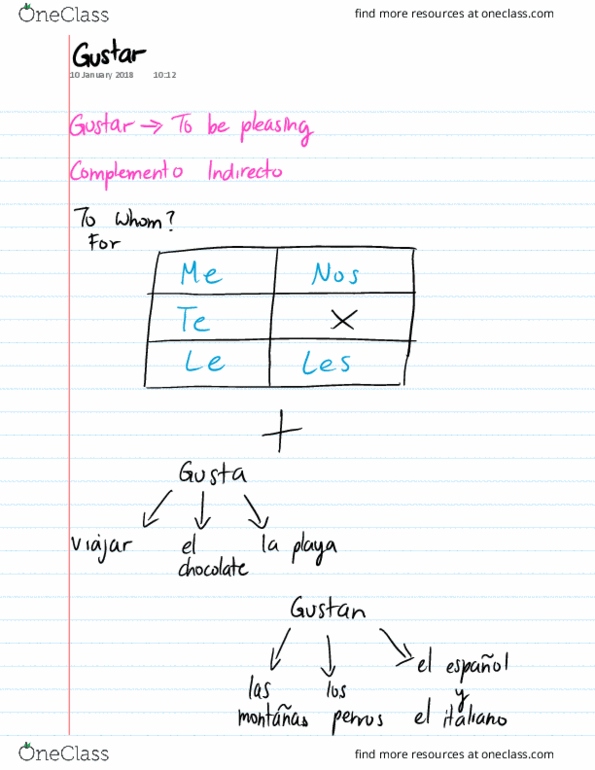 OneClass
find more resources at oneclass.com
Gustar
10 January 2018 10:12
Gustar → To be pleasing
Complemento Indirecto
To Whom?
For
Me Nos
Te X
Le Les
+
Gusta
viájar el chocolate la playa
Gustan
las montáñas los perros el español y el italiano
OneClass
find more resources at oneclass.com